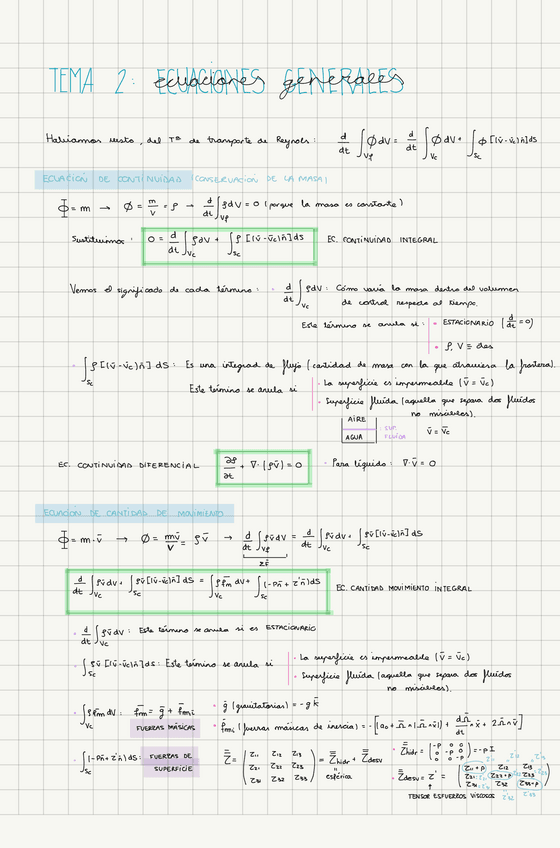 TEMA 2: ecuaciones generales
ECUACIONES GENERALES
Habíamos visto, del Tª de transporte de Reynols: d/dt ∫_Vf ϕ dV = d/dt ∫_Vc ϕ dV + ∫_Sc ϕ [(v̄ - v̄c) n̄] dS
ECUACIÓN DE CONTINUIDAD (CONSERVACIÓN DE LA MASA)
Φ = m → ϕ = m/V = ρ → d/dt ∫_Vf ρ dV = 0 (porque la masa es constante)
Sustituimos: 0 = d/dt ∫_Vc ρ dV + ∫_Sc ρ [(v̄ - v̄c) n̄] dS EC. CONTINUIDAD INTEGRAL
Vemos el significado de cada término: · d/dt ∫_Vc ρ dV: Cómo varía la masa dentro del volumen
de control respecto al tiempo.
Este término se anula si: • ESTACIONARIO (d/dt = 0)
• ρ, V ≡ ctes
· ∫_Sc ρ [(v̄ - v̄c) n̄] dS: Es una integral de flujo (cantidad de masa con la que atraviesa la frontera).
Este término se anula si · La superficie es impermeable (v̄ = v̄c)
· Superficie fluida (aquella que separa dos fluidos
no miscibles).
AIRE
AGUA
: SUP. FLUIDA
v̄ = v̄c
EC. CONTINUIDAD DIFERENCIAL ∂ρ/∂t + ∇·(ρv̄) = 0 · Para líquido: ∇·v̄ = 0
ECUACIÓN DE CANTIDAD DE MOVIMIENTO
Φ = m·v̄ → ϕ = mv̄/V = ρv̄ → d/dt ∫_Vf ρv̄ dV = d/dt ∫_Vc ρv̄ dV + ∫_Sc ρv̄ [(v̄ - v̄c) n̄] dS
ΣF̄
d/dt ∫_Vc ρv̄ dV + ∫_Sc ρv̄ [(v̄ - v̄c) n̄] dS = ∫_Vc ρ f̄m dV + ∫_Sc (-P n̄ + τ' n̄) dS EC. CANTIDAD MOVIMIENTO INTEGRAL
· d/dt ∫_Vc ρv̄ dV: Este término se anula si es ESTACIONARIO
· ∫_Sc ρv̄ [(v̄ - v̄c) n̄] dS: Este término se anula si · La superficie es impermeable (v̄ = v̄c)
· Superficie fluida (aquella que separa dos fluidos
no miscibles).
· ∫_Vc ρ f̄m dV: f̄m = ḡ + f̄mi • ḡ (gravitatorias) = -g k̄
FUERZAS MÁSICAS • f̄mi (fuerzas másicas de inercia) = -[a₀ + Ω̄ ∧ (Ω̄ ∧ x̄) + dΩ̄/dt ∧ x̄ + 2Ω̄ ∧ v̄]
· ∫_Sc (-P n̄ + τ' n̄) dS: FUERZAS DE SUPERFICIE
τ = (τ11 τ12 τ13; τ21 τ22 τ23; τ31 τ32 τ33) = τhidr + τdesv
esférica
• τhidr = (-P 0 0; 0 -P 0; 0 0 -P) = -P I
• τdesv = τ' = (τ11+P τ12 τ13; τ21 τ22+P τ23; τ31 τ32 τ33+P)
TENSOR ESFUERZOS VISCOSOS